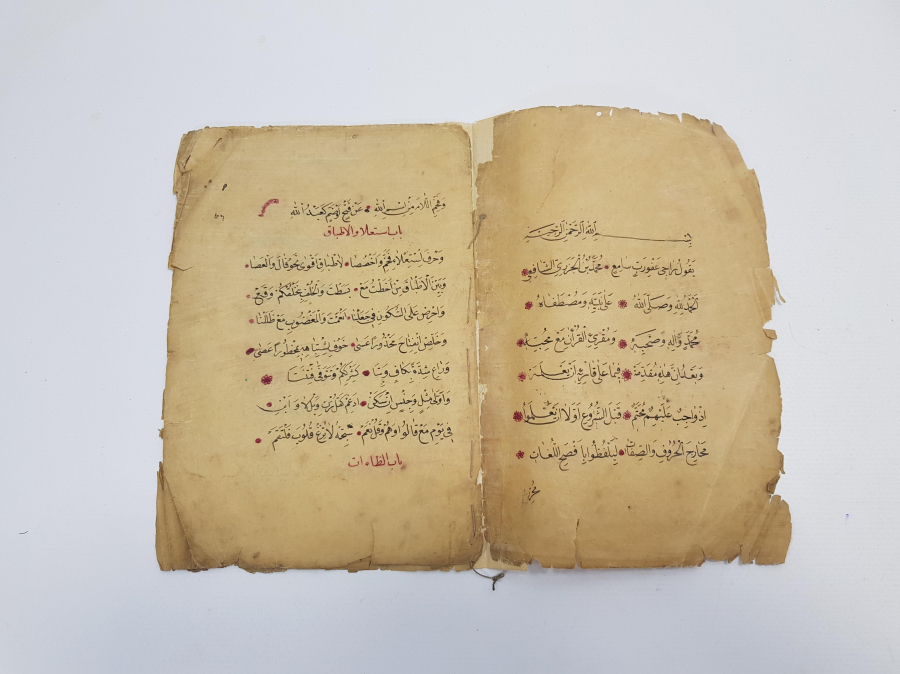 بسم الله الرحمن الرحيم
يقول راجي عفو رب سامع محمد بن الجزري الشافعي
الحمد لله وصلى الله على نبيه ومصطفاه
محمد واله وصحبه ومقرئ القرآن مع محبه
وبعد ان هذه مقدمة فيما على قارئه ان يعلمه
اذ واجب عليهم محتم قبل الشروع اولا ان يعلموا
مخارج الحروف والصفات ليلفظوا بافصح اللغات
وفخم اللام من اسم الله عن فتح او ضم كعبد الله
باب استعلا والاطباق
وحرف استعلاء فخم واخصصا لاطباق اقوى نحو قال والعصا
وبين الاطباق من احطت مع بسطت والخلف بنخلقكم وقع
واحرص على السكون في جعلنا انعمت والمغضوب مع ظللنا
وخلص انفتاح محذورا عسى خوف اشتباهه بمحظورا عصى
وراع شدة بكاف وبتا كشرككم وتتوفى فتنتا
واولى مثل وجنس ان سكن ادغم كقل رب وبل لا وابن
في يوم مع قالوا وهم وقل نعم سبحه لا تزغ قلوب فلتقم
باب الظاءات